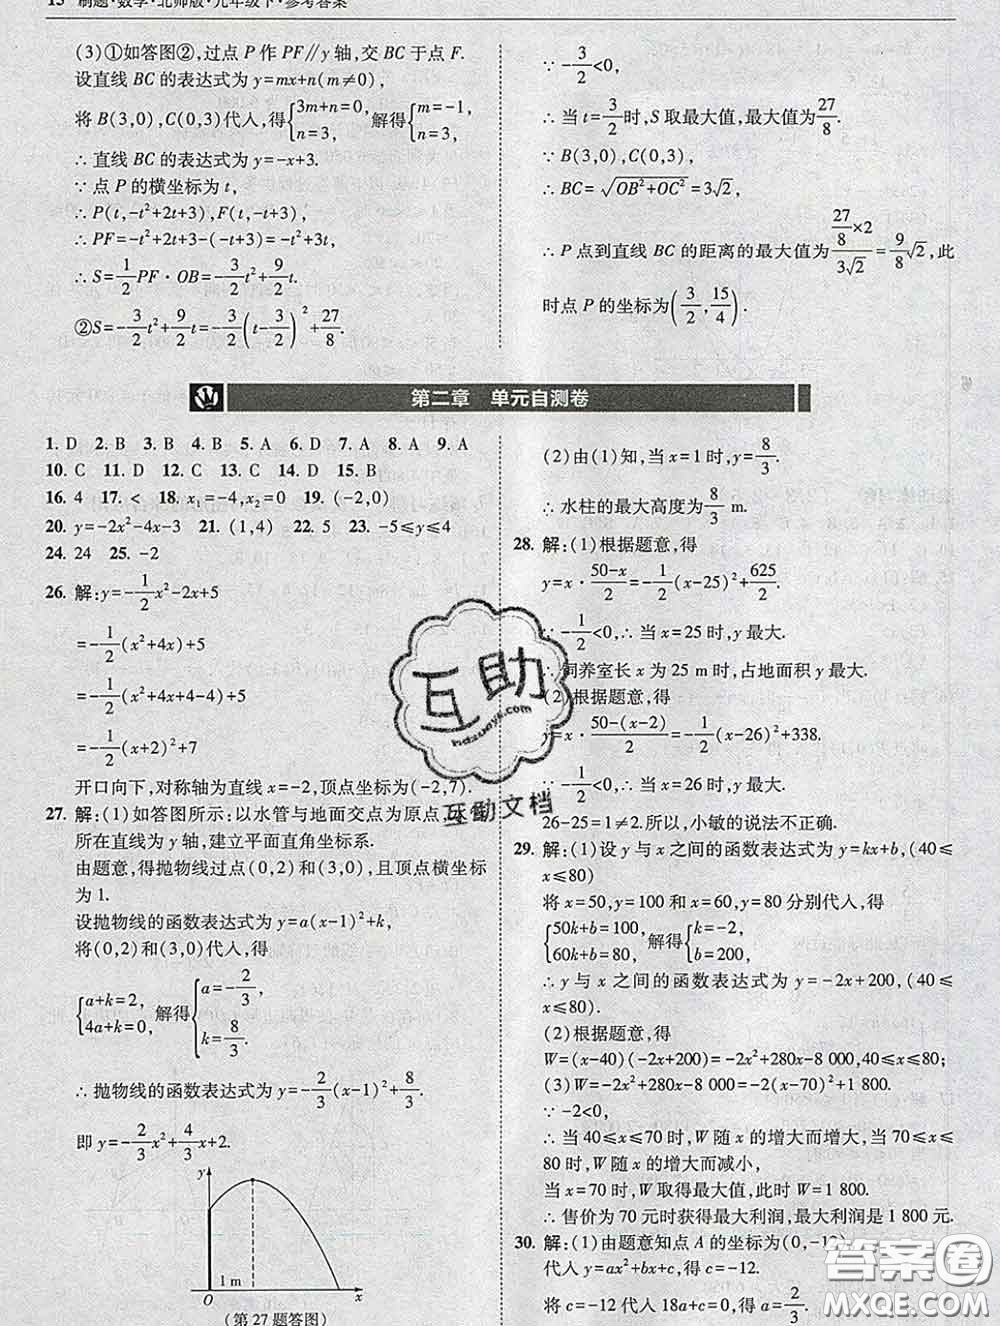 15 刷题·数学·北师版·九年级下·参考答案
(3)①如答图②,过点 P 作 PF∥y 轴,交 BC 于点 F.
设直线 BC 的表达式为 y=mx+n(m≠0),
将 B(3,0),C(0,3)代入,得{3m+n=0, n=3, 解得{m=-1, n=3,
∴ 直线 BC 的表达式为 y=-x+3.
∵ 点 P 的横坐标为 t,
∴ P(t,-t²+2t+3),F(t,-t+3),
∴ PF=-t²+2t+3-(-t+3)=-t²+3t,
∴ S=1/2 PF·OB=-3/2 t²+9/2 t.
②S=-3/2 t²+9/2 t=-3/2(t-3/2)²+27/8.
∵ -3/2<0,
∴ 当 t=3/2时,S 取最大值,最大值为27/8.
∵ B(3,0),C(0,3),
∴ BC=√(OB²+OC²)=3√2,
∴ P 点到直线 BC 的距离的最大值为(27/8×2)/(3√2)=9/8√2,此
时点 P 的坐标为(3/2,15/4).
第二章 单元自测卷
1. D 2. B 3. B 4. B 5. A 6. D 7. A 8. A 9. A
10. C 11. D 12. C 13. C 14. D 15. B
16. 4 17. < 18. x₁=-4,x₂=0 19. (-2,0)
20. y=-2x²-4x-3 21. (1,4) 22. 5 23. -5≤y≤4
24. 24 25. -2
26. 解:y=-1/2x²-2x+5
=-1/2(x²+4x)+5
=-1/2(x²+4x+4-4)+5
=-1/2(x+2)²+7
开口向下,对称轴为直线 x=-2,顶点坐标为(-2,7).
27. 解:(1)如答图所示:以水管与地面交点为原点,水管
所在直线为 y 轴,建立平面直角坐标系.
由题意,得抛物线过点(0,2)和(3,0),且顶点横坐标
为 1.
设抛物线的函数表达式为 y=a(x-1)²+k,
将(0,2)和(3,0)代入,得
{a+k=2, 4a+k=0, 解得{a=-2/3, k=8/3.
∴ 抛物线的函数表达式为 y=-2/3(x-1)²+8/3.
即 y=-2/3x²+4/3x+2.
y
1 m
O x
(第 27 题答图)
(2)由(1)知,当 x=1 时,y=8/3.
∴ 水柱的最大高度为 8/3 m.
28. 解:(1)根据题意,得
y=x·(50-x)/2=-1/2(x-25)²+625/2.
∵ -1/2<0,∴ 当 x=25 时,y 最大.
∴ 饲养室长 x 为 25 m 时,占地面积 y 最大.
(2)根据题意,得
y=x·(50-(x-2))/2=-1/2(x-26)²+338.
∵ -1/2<0,∴ 当 x=26 时,y 最大.
26-25=1≠2.所以,小敏的说法不正确.
29. 解:(1)设 y 与 x 之间的函数表达式为 y=kx+b,(40≤
x≤80)
将 x=50,y=100 和 x=60,y=80 分别代入,得
{50k+b=100, 60k+b=80, 解得{k=-2, b=200,
∴ y 与 x 之间的函数表达式为 y=-2x+200,(40≤
x≤80).
(2)根据题意,得
W=(x-40)(-2x+200)=-2x²+280x-8 000,40≤x≤80;
(3)W=-2x²+280x-8 000=-2(x-70)²+1 800.
∵ -2<0,
∴ 当 40≤x≤70 时,W 随 x 的增大而增大,当 70≤x≤
80 时,W 随 x 的增大而减小,
当 x=70 时,W 取得最大值,此时 W=1 800.
∴ 售价为 70 元时获得最大利润,最大利润是 1 800 元.
30. 解:(1)由题意知点 A 的坐标为(0,-12),
代入 y=ax²+bx+c,得 c=-12.
将 c=-12 代入 18a+c=0,得 a=2/3.
互助
hdzuoye.com
互助文档
答案圈
MXQE.COM